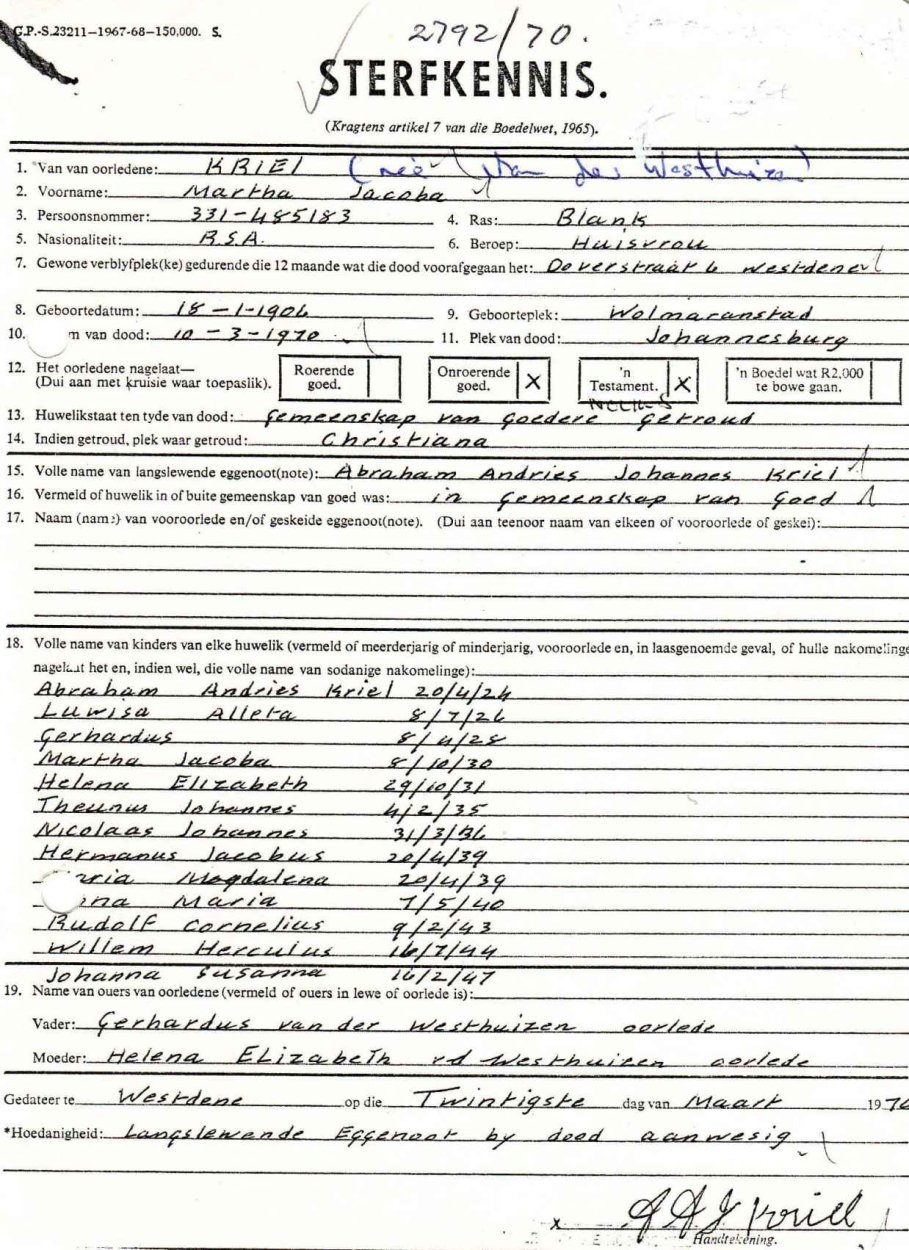 G.P.-S.23211—1967-68—150,000. S.
2792/70.
STERFKENNIS.
(Kragtens artikel 7 van die Boedelwet, 1965).
1. *Van van oorledene: KRIEL (neé Van der Westhuizen)
2. Voorname: Martha Jacoba
3. Persoonsnommer: 331-485183 4. Ras: Blank
5. Nasionaliteit: R.S.A. 6. Beroep: Huisvrou
7. Gewone verblyfplek(ke) gedurende die 12 maande wat die dood voorafgegaan het: Doverstraat 6 Westdene
8. Geboortedatum: 18-1-1906 9. Geboorteplek: Wolmaranstad
10. m van dood: 10-3-1970 11. Plek van dood: Johannesburg
12. Het oorledene nagelaat— (Dui aan met kruisie waar toepaslik). Roerende goed. Onroerende goed. X 'n Testament. X 'n Boedel wat R2,000 te bowe gaan.
13. Huwelikstaat ten tyde van dood: Gemeenskap van Goedere Getroud
14. Indien getroud, plek waar getroud: Christiana
15. Volle name van langslewende eggenoot(note): Abraham Andries Johannes Kriel
16. Vermeld of huwelik in of buite gemeenskap van goed was: in Gemeenskap van Goed
17. Naam (name) van vooroorlede en/of geskeide eggenoot(note). (Dui aan teenoor naam van elkeen of vooroorlede of geskei):
18. Volle name van kinders van elke huwelik (vermeld of meerderjarig of minderjarig, vooroorlede en, in laasgenoemde geval, of hulle nakomelinge
nagelaat het en, indien wel, die volle name van sodanige nakomelinge):
Abraham Andries Kriel 20/4/24
Luwisa Alleta 8/7/26
Gerhardus 8/4/28
Martha Jacoba 8/10/30
Helena Elizabeth 29/10/31
Theunus Johannes 4/2/35
Nicolaas Johannes 31/3/36
Hermanus Jacobus 20/4/39
ria Magdalena 20/4/39
na Maria 7/5/40
Rudolf Cornelius 9/2/43
Willem Herculus 16/7/44
Johanna Susanna 16/2/47
19. Name van ouers van oorledene (vermeld of ouers in lewe of oorlede is):
Vader: Gerhardus van der Westhuizen oorlede
Moeder: Helena Elizabeth vd Westhuizen oorlede
Gedateer te Westdene op die Twintigste dag van Maart 1970
*Hoedanigheid: Langslewende Eggenoot by dood aanwesig
x AAJ Kriel
Handtekening.